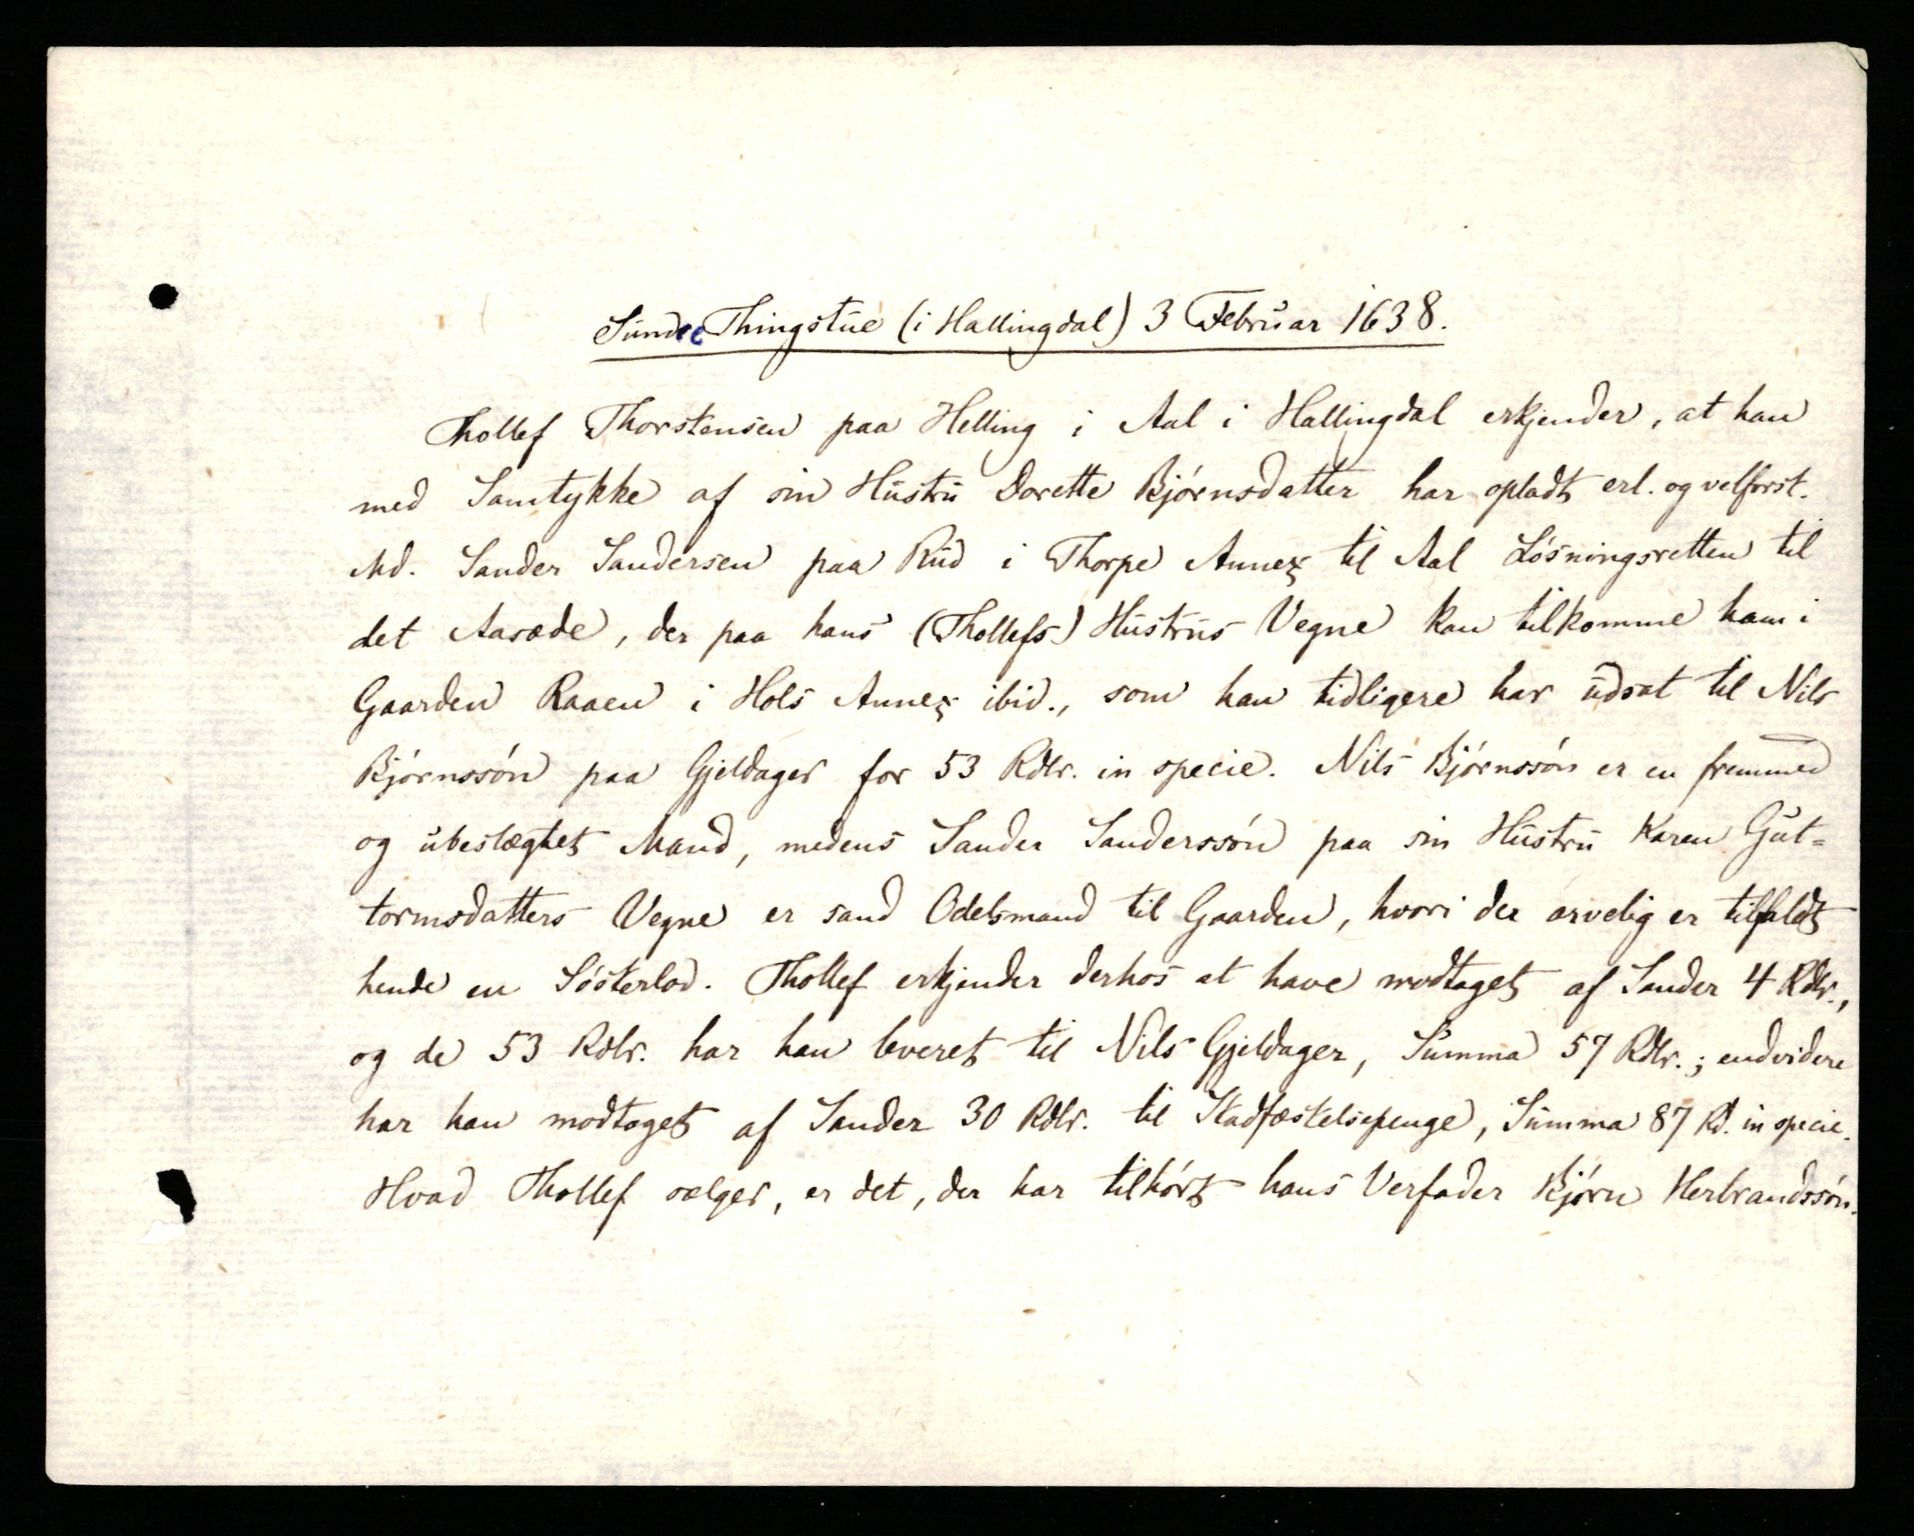 Sundre Thingstue (i Hallingdal) 3 Februar 1638.
Thollef Thorstensen paa Helling i Aal i Hallingdal erkjender, at han
med Samtykke af sin Hustru Dorette Bjørnsdatter har opladt erl. og velforst.
Md. Sander Sandersen paa Rud i Thorpe Annex til Aal Løsningsretten til
det Aasæde, der paa hans (Thollefs) Hustrus Vegne kan tilkomme ham i
Gaarden Raaen i Hols Annex ibid., som han tidligere har udsat til Nils
Bjørnssøn paa Gjeldager for 53 Rdlr. in specie. Nils Bjørnssøn er en fremmed
og ubeslægtet Mand, medens Sander Sanderssøn paa sin Hustru Karen Gut-
tormsdatters Vegne er sand Odelsmand til Gaarden, hvori der arvelig er tilfaldt
hende en Søsterlod. Thollef erkjender derhos at have modtaget af Sander 4 Rdlr.,
og de 53 Rdlr. har han leveret til Nils Gjeldager, Summa 57 Rdlr.; endvidere
har han modtaget af Sander 30 Rdlr. til Stadfæstelsepenge, Summa 87 Rd. in specie.
Hvad Thollef sælger, er det, der har tilhørt hans Verfader Bjørn Herbrandssøn.